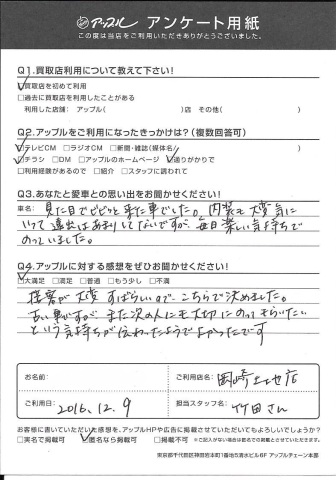 アップル アンケート用紙
この度は当店をご利用いただきありがとうございました。
Q1.買取店利用について教えて下さい!
☑買取店を初めて利用
□過去に買取店を利用したことがある
利用した店舗: アップル( )店 その他( )
Q2.アップルをご利用になったきっかけは?(複数回答可)
☑テレビCM □ラジオCM □新聞・雑誌(媒体名 )
☑チラシ □DM □アップルのホームページ ☑通りがかりで
□利用経験があるので □紹介 □スタッフに誘われて
Q3.あなたと愛車との思い出をお聞かせください!
車名: 見た目でビビッと来た車でした。内装も大変気に
いって遠出はあまりしてないですが、毎日楽しい気持ちで
のっていました。
Q4.アップルに対する感想をぜひお聞かせください!
☑大満足 □満足 □普通 □もう少し □不満
接客が大変すばらしいので、こちらで決めました。
古い車ですが、また次の人にも大切にのってもらいたい
という気持ちが伝わったようでよかったです
お名前:
ご利用店名: 岡崎店
ご利用日: 2016.12.9
担当スタッフ名: 竹田さん
お客様に書いていただいた感想を、アップルHPや広告に掲載させていただいてもよろしいでしょうか?
□実名で掲載可 ☑匿名なら掲載可 □掲載不可 ※ご記入がない場合は匿名での掲載とさせていただきます。
東京都千代田区神田岩本町1番地5清水ビル6F アップルチェーン本部